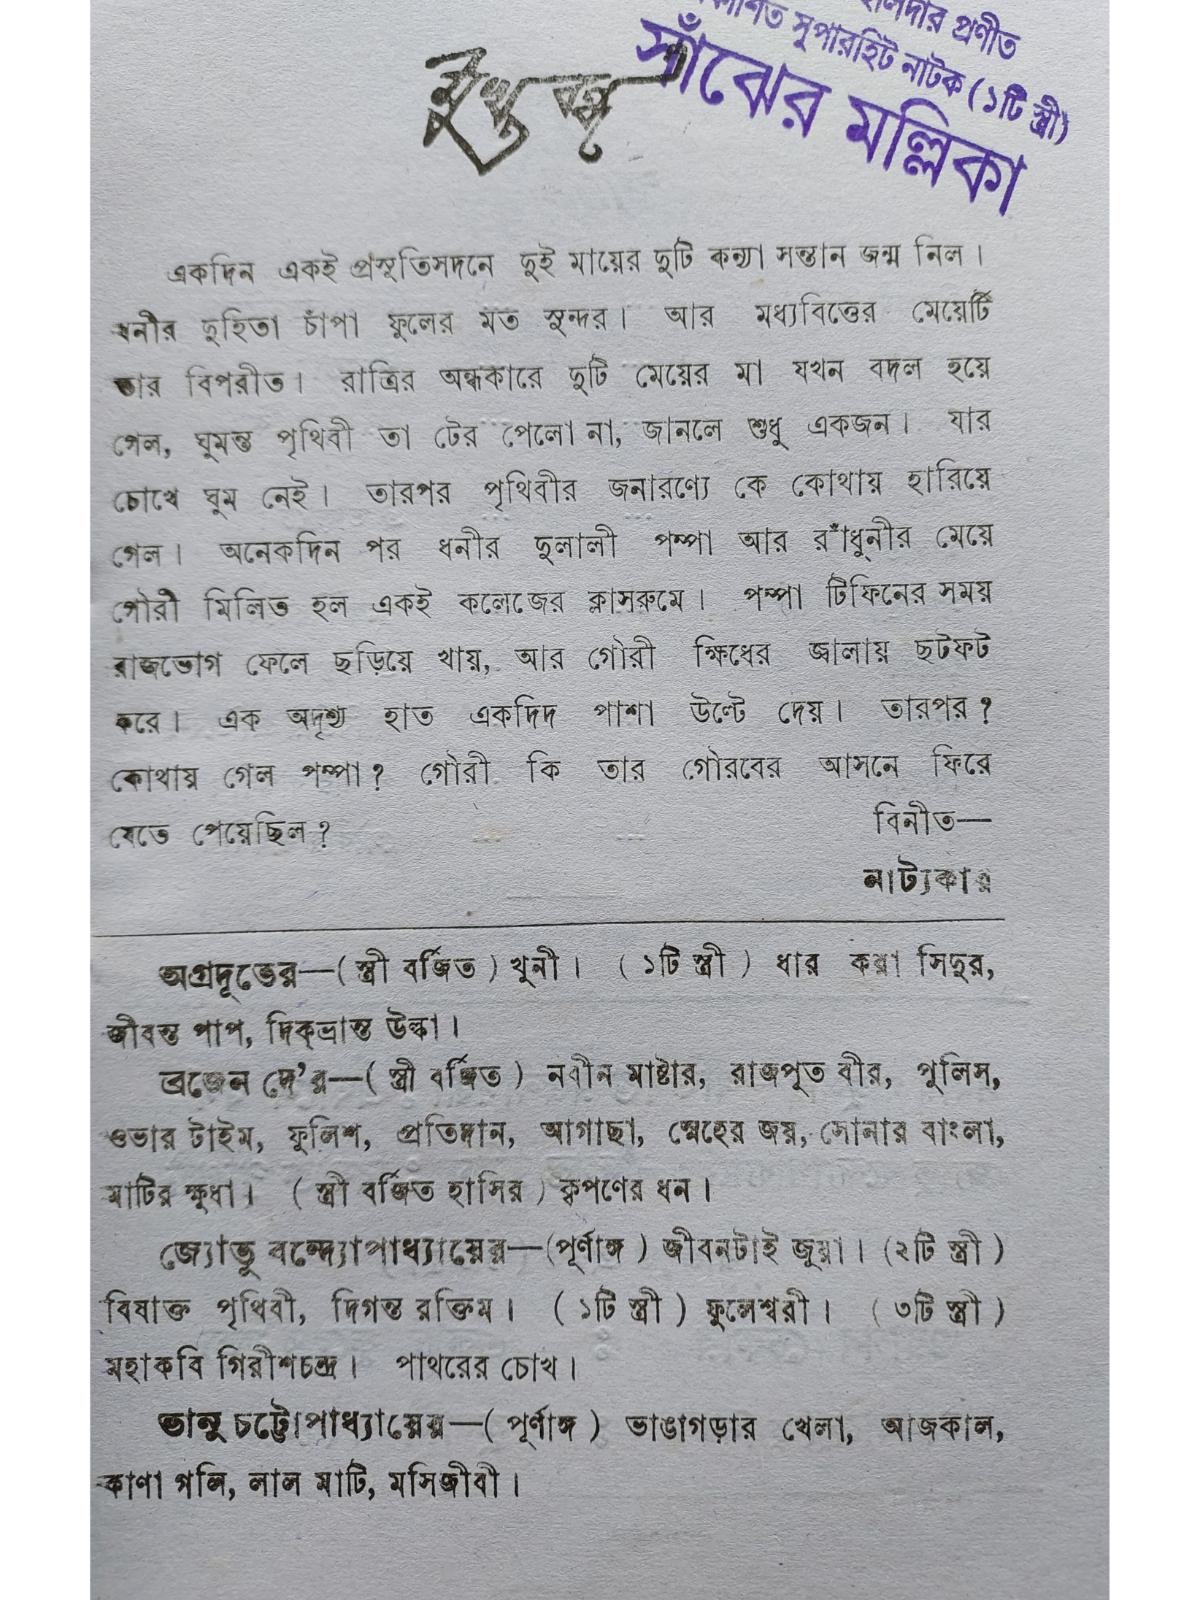 হালদার প্রণীত
সুপারহিট নাটক (১টি স্ত্রী)
সাঁঝের মল্লিকা
মুখবন্ধ
একদিন একই প্রসূতিসদনে দুই মায়ের দুটি কন্যা সন্তান জন্ম নিল।
ধনীর দুহিতা চাঁপা ফুলের মত সুন্দর। আর মধ্যবিত্তের মেয়েটি
তার বিপরীত। রাত্রির অন্ধকারে দুটি মেয়ের মা যখন বদল হয়ে
গেল, ঘুমন্ত পৃথিবী তা টের পেলো না, জানলে শুধু একজন। যার
চোখে ঘুম নেই। তারপর পৃথিবীর জনারণ্যে কে কোথায় হারিয়ে
গেল। অনেকদিন পর ধনীর দুলালী পম্পা আর রাঁধুনীর মেয়ে
গৌরী মিলিত হল একই কলেজের ক্লাসরুমে। পম্পা টিফিনের সময়
রাজভোগ ফেলে ছড়িয়ে খায়, আর গৌরী ক্ষিধের জ্বালায় ছটফট
করে। এক অদৃশ্য হাত একদিদ পাশা উল্টে দেয়। তারপর?
কোথায় গেল পম্পা? গৌরী কি তার গৌরবের আসনে ফিরে
যেতে পেয়েছিল?
বিনীত—
নাট্যকার
অগ্রদূতের—(স্ত্রী বর্জিত) খুনী। (১টি স্ত্রী) ধার করা সিদুর,
জীবন্ত পাপ, দিক্‌ভ্রান্ত উল্কা।
ব্রজেন দে'র—(স্ত্রী বর্জিত) নবীন মাষ্টার, রাজপুত বীর, পুলিস,
ওভার টাইম, ফুলিশ, প্রতিদান, আগাছা, স্নেহের জয়, সোনার বাংলা,
মাটির ক্ষুধা। (স্ত্রী বর্জিত হাসির) কৃপণের ধন।
জ্যোতু বন্দ্যোপাধ্যায়ের—(পূর্ণাঙ্গ) জীবনটাই জুয়া। (২টি স্ত্রী)
বিষাক্ত পৃথিবী, দিগন্ত রক্তিম। (১টি স্ত্রী) ফুলেশ্বরী। (৩টি স্ত্রী)
মহাকবি গিরীশচন্দ্র। পাথরের চোখ।
ভানু চট্টোপাধ্যায়ের—(পূর্ণাঙ্গ) ভাঙাগড়ার খেলা, আজকাল,
কাণা গলি, লাল মাটি, মসিজীবী।